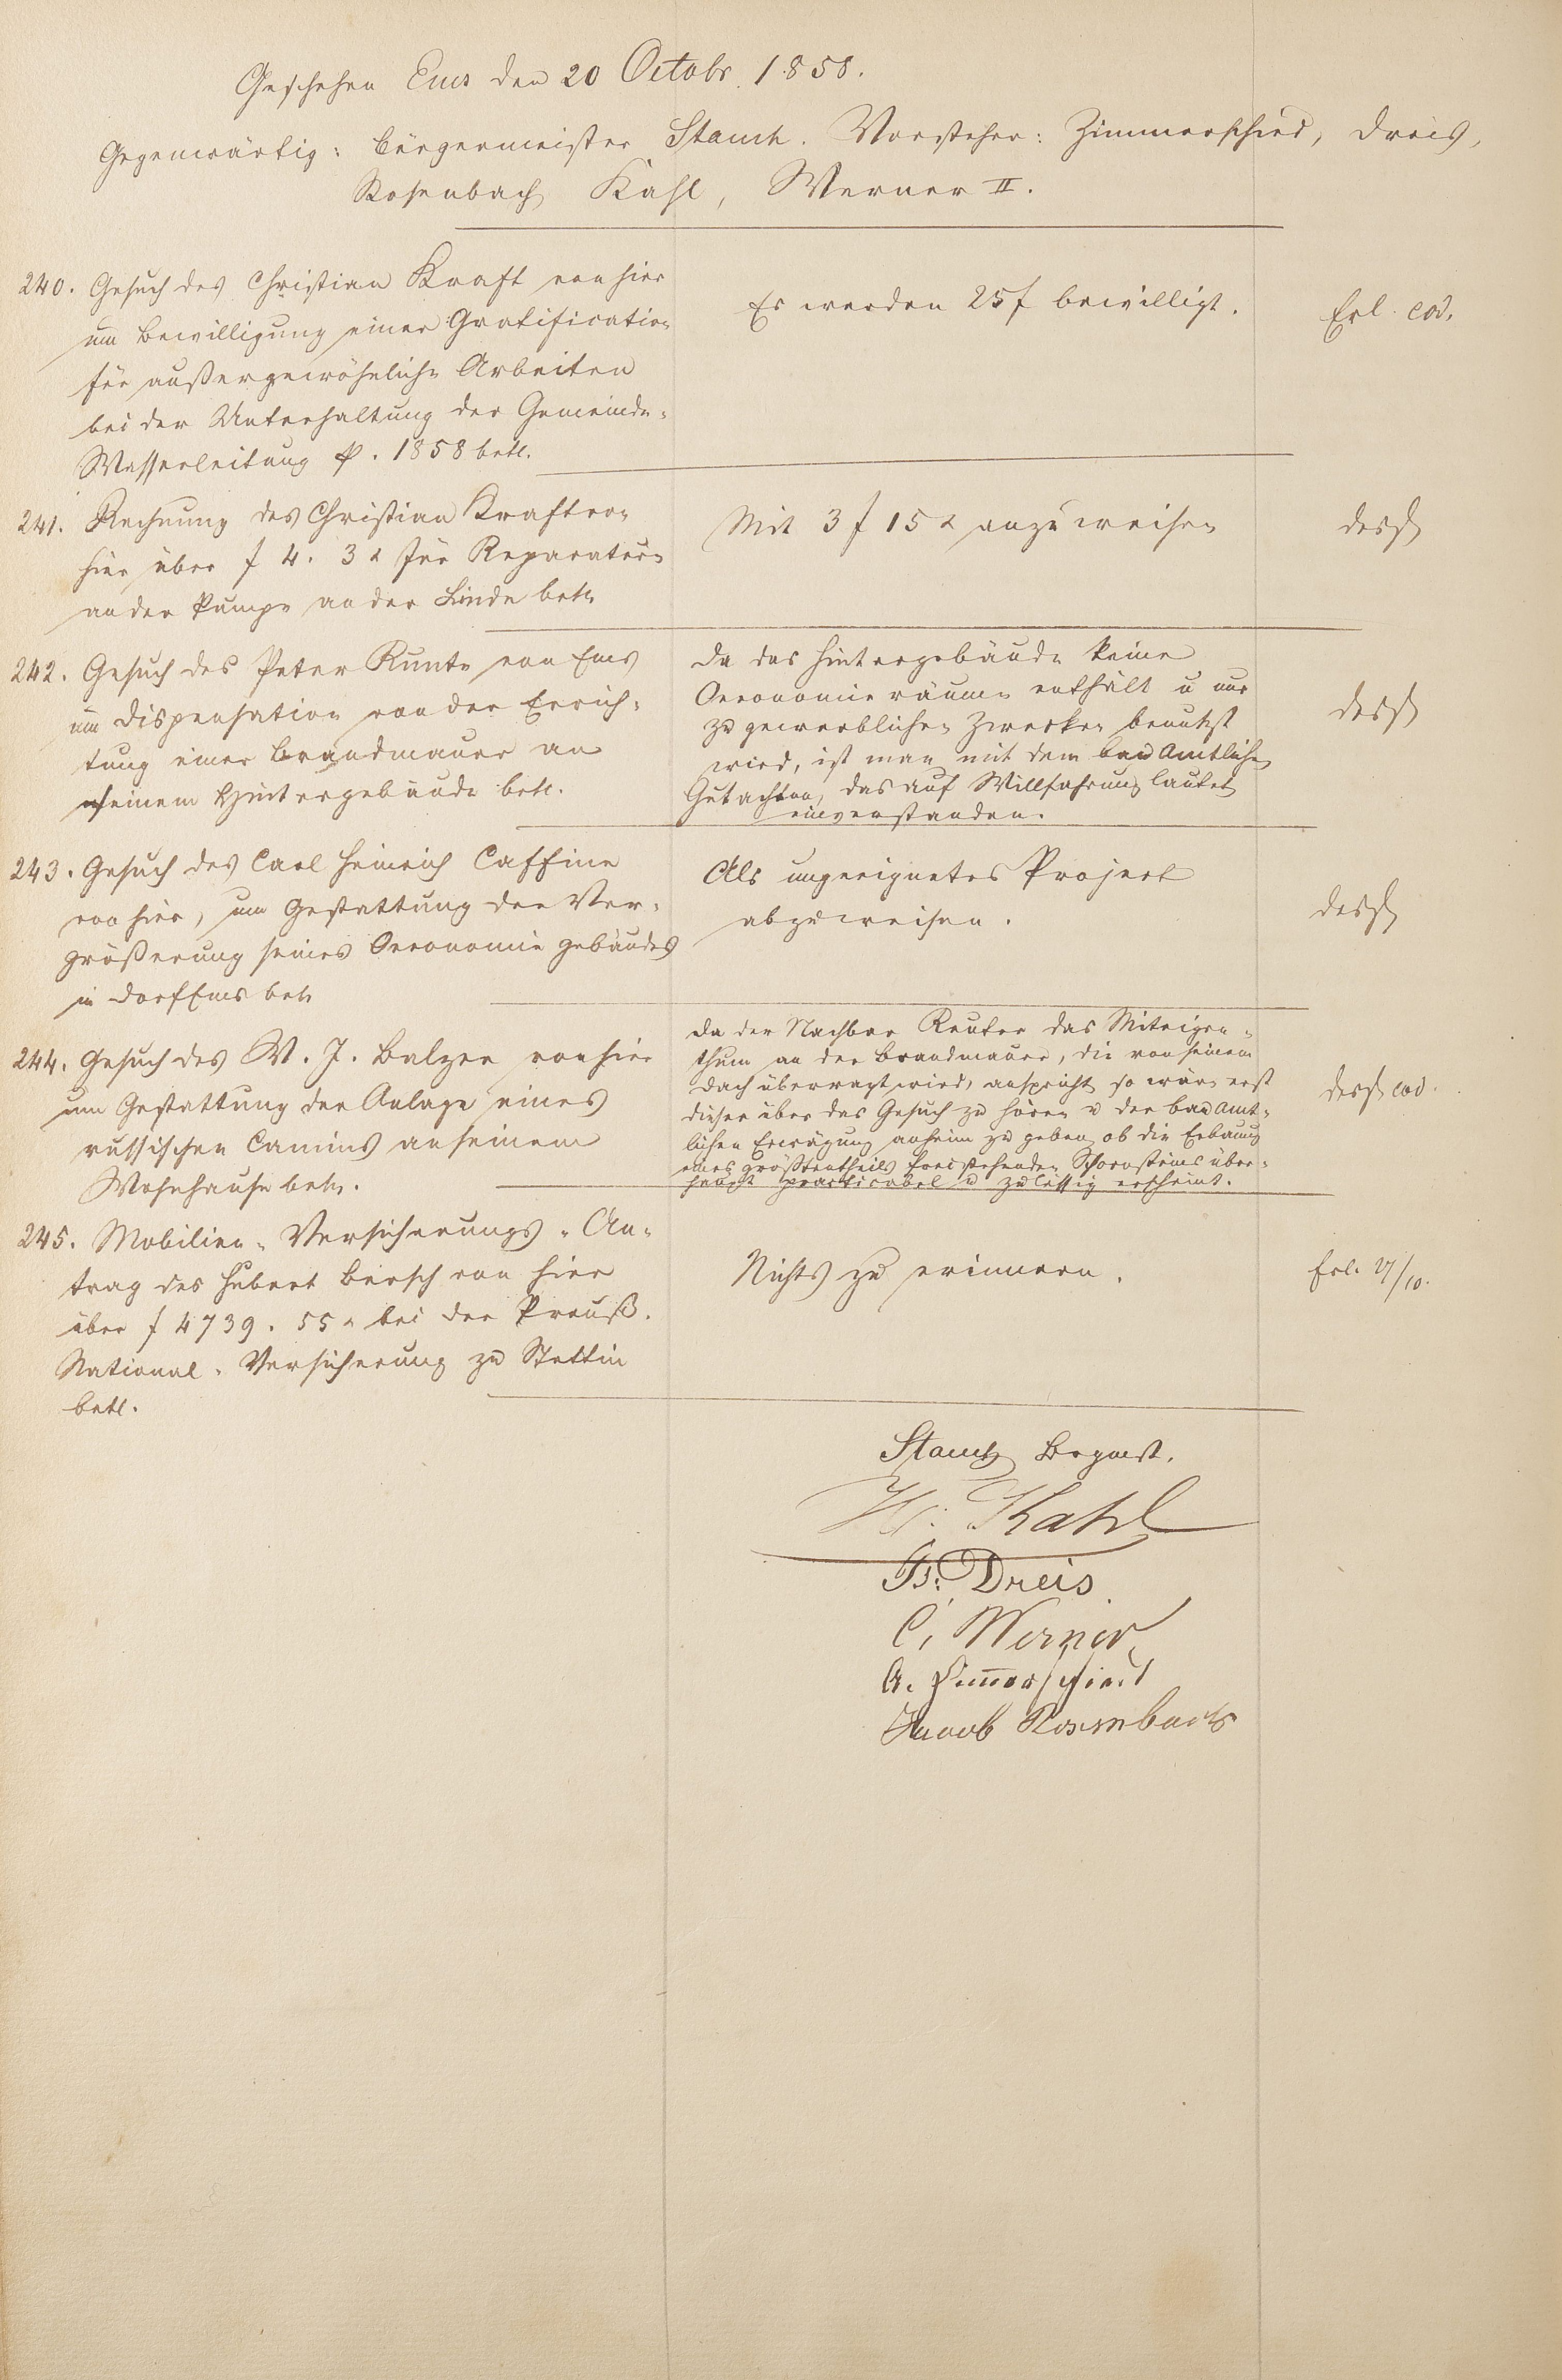 Geschehen Ems den 20 Octobr. 1858.
Gegenwärtig: Bürgermeister Stamm. Vorsteher: Zimmerschied, Dreis,
Rosenbach, Kahl, Werner II.
240. Gesuch des Christian Kraft von hier
um Bewilligung einer Gratification
für außergewöhnliche Arbeiten
bei der Unterhaltung der Gemeinde-
Wasserleitung p. 1858 betr.
Es werden 25 f bewilligt.
Erl. eod.
241. Rechnung des Christian Kraft von
hier über f 4. 3 x für Reparaturen
an der Pumpe an der Linde betr.
Mit 3 f 15 x anzuweisen
dessgl
242. Gesuch des Peter Kuntz von Ems
um Dispensation von der Errich-
tung einer Brandmauer an
seinem Hintergebäude betr.
Da das Hintergebäude keine
Oeconomieräume enthält u nur
zu gewerblichen Zwecken benutzt
wird, ist man mit dem bauamtlichen
Gutachten, das auf Willfahrung lautet
einverstanden.
dessgl
243. Gesuch des Carl Heinrich Caffine
von hier, um Gestattung der Ver-
größerung seines Oeconomie gebäudes
in Dorf Ems betr
Als ungeeignetes Project
abzuweisen.
dessgl
244. Gesuch des W. J. Balzer von hier
um Gestattung der Anlage eines
russischen Camins an seinem
Wohnhause betr.
Da der Nachbar Reuter das Miteigen-
thum an der Brandmauer, die von seinem
Dach überragt wird, anspricht, so wäre erst
dieser über das Gesuch zu hören u der bauamt-
lichen Erwägung anheim zu geben, ob die Erbauung
eines größtentheils freistehenden Schornsteins über-
haupt practicabel u zulässig erscheint.
dessgl eod.
245. Mobilien-Versicherungs-An-
trag des Hubert Birsch von hier
über f 4739. 55 x bei der Preuß.
National-Versicherung zu Stettin
betr.
Nichts zu erinnern.
Erl. 21/10.
Stamm Brgmst.
H. Kahl
Dreis
C. Werner
A. Zimmerschied
Jacob Rosenbach